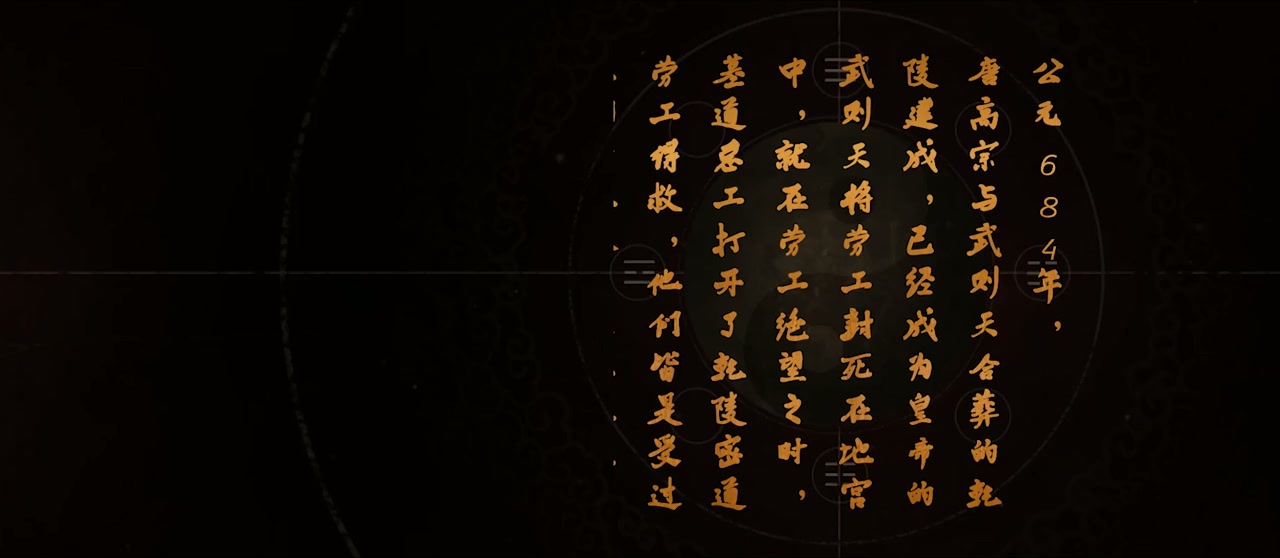 公元684年，
唐高宗与武则天合葬的乾
陵建成，已经成为皇帝的
武则天将劳工封死在地宫
中，就在劳工绝望之时，
墓道总工打开了乾陵密道
劳工得救，他们皆是受过